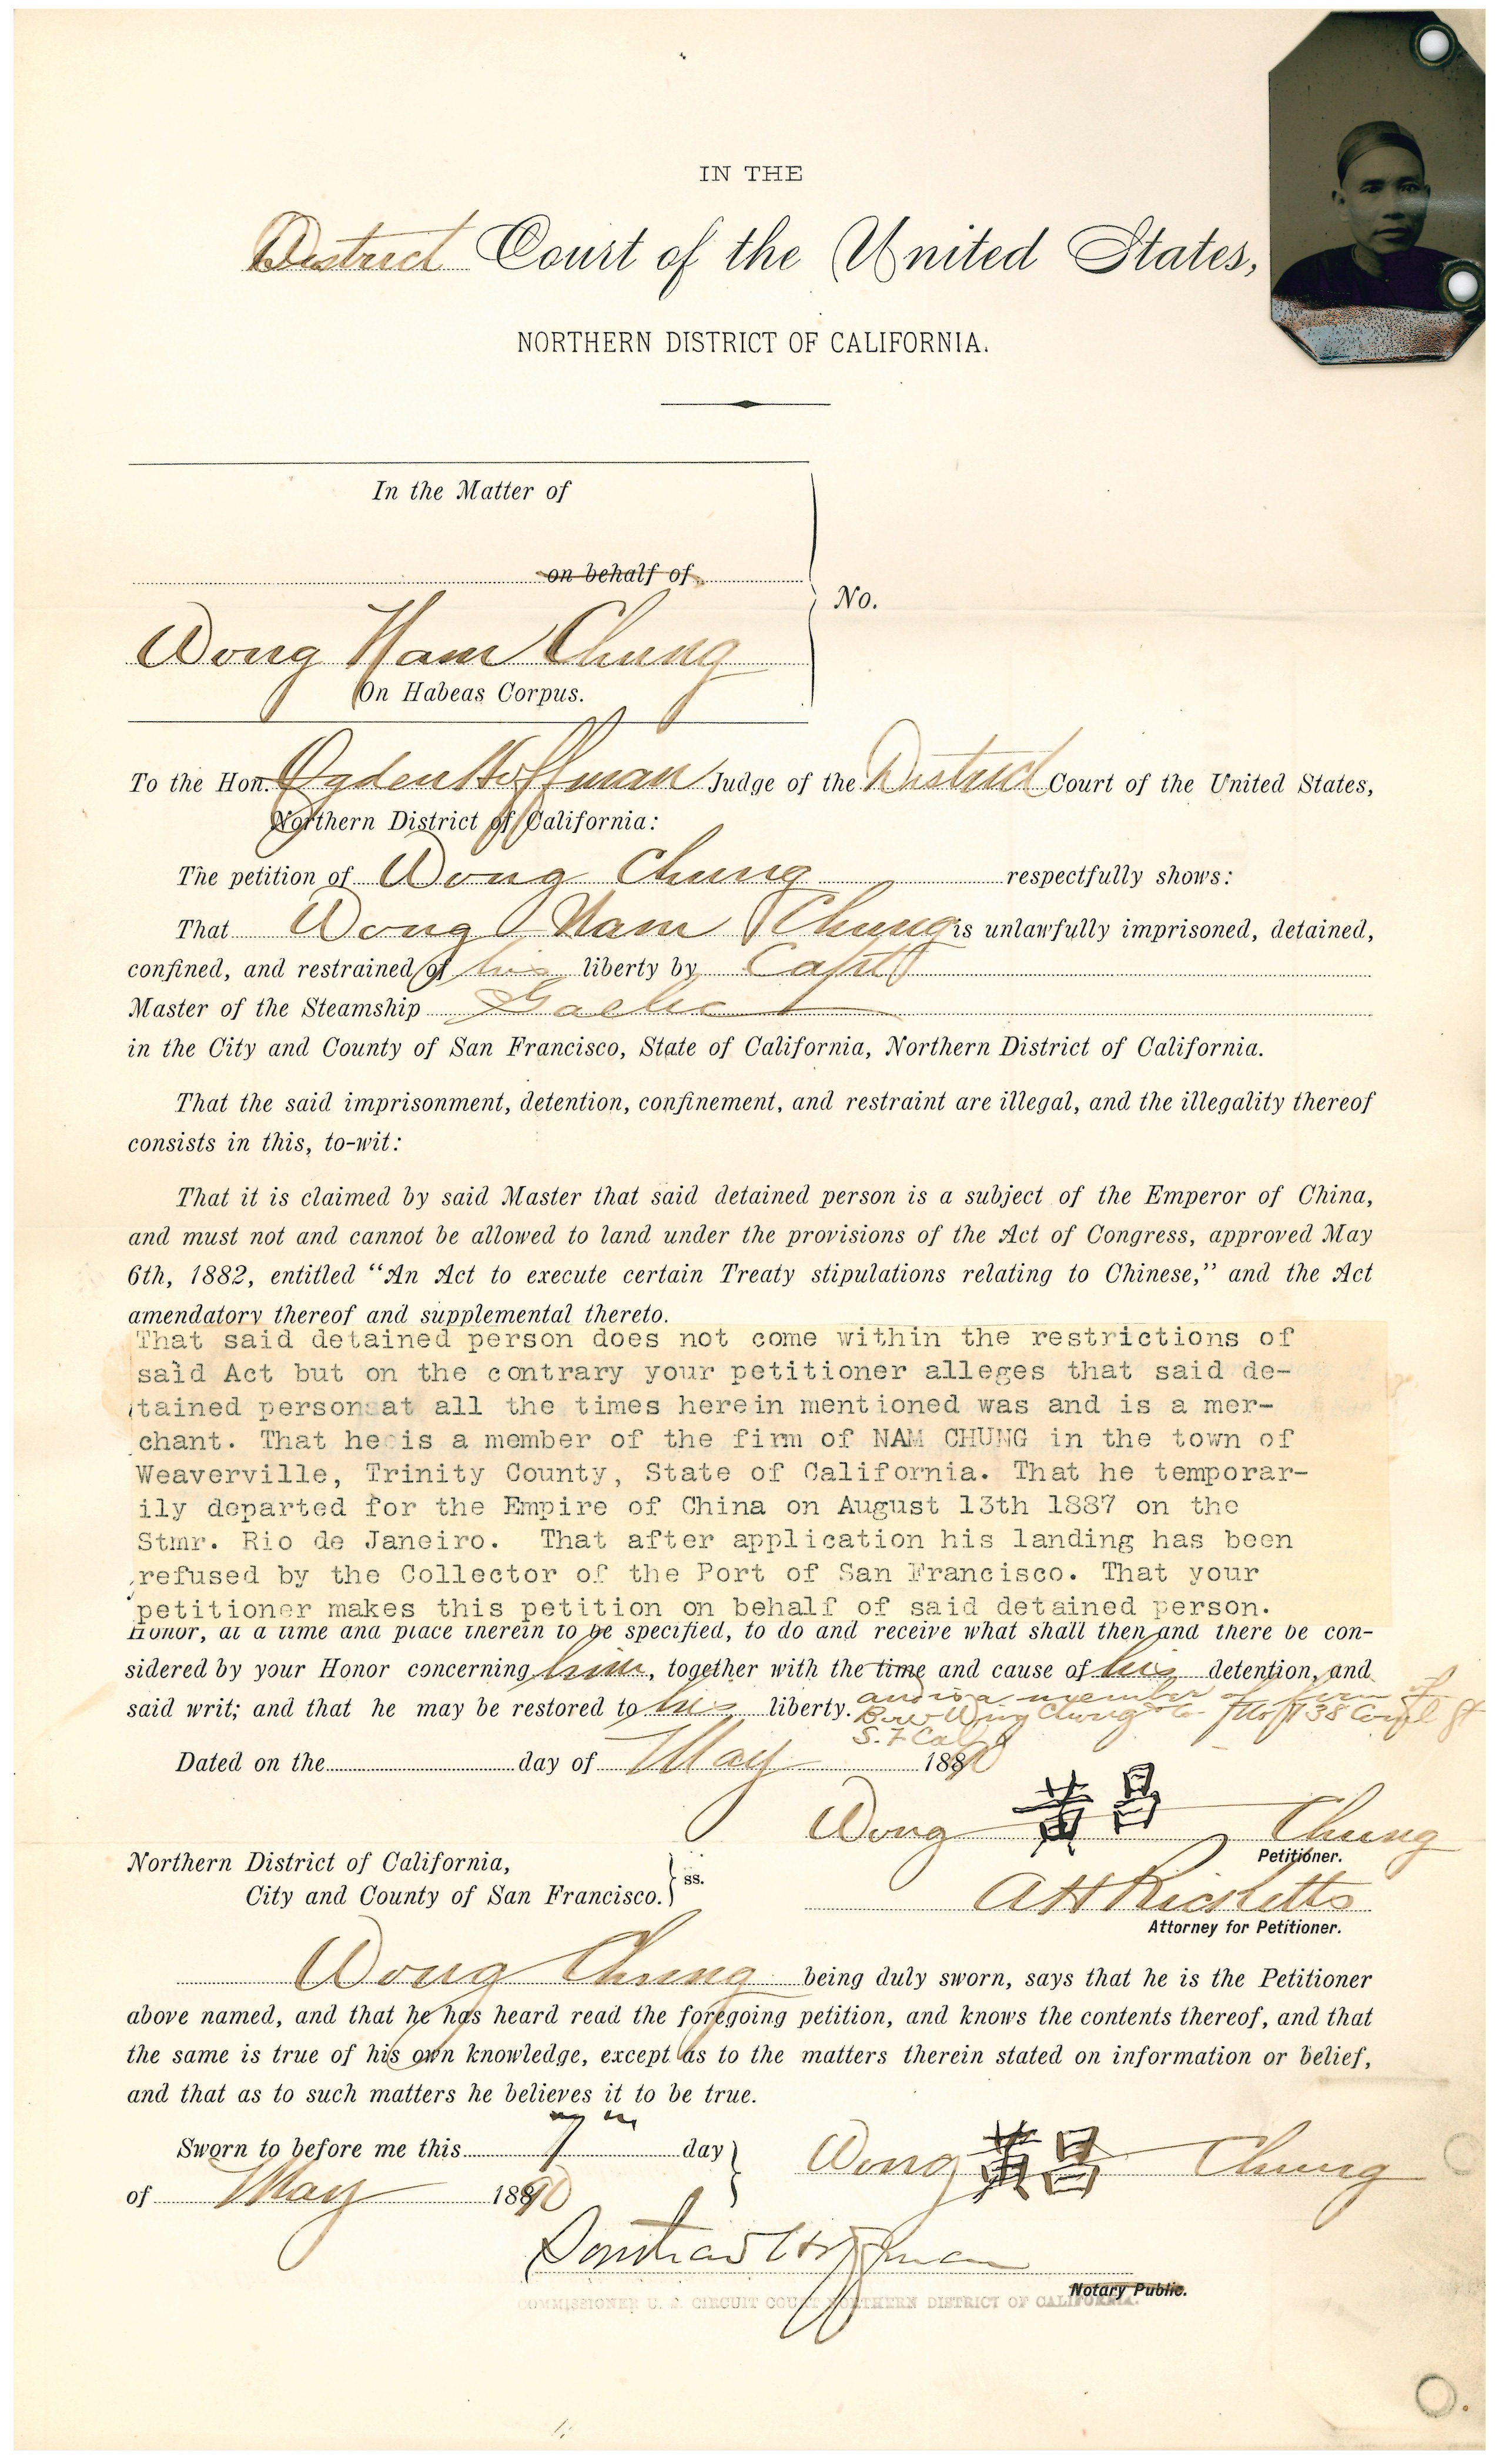 IN THE
District Court of the United States,
NORTHERN DISTRICT OF CALIFORNIA.
In the Matter of
on behalf of
Wong Nam Chung
On Habeas Corpus.
No.
To the Hon. Ogden Hoffman Judge of the District Court of the United States,
Northern District of California:
The petition of Wong Chung respectfully shows:
That Wong Nam Chung is unlawfully imprisoned, detained,
confined, and restrained of his liberty by Capt
Master of the Steamship Gaelic
in the City and County of San Francisco, State of California, Northern District of California.
That the said imprisonment, detention, confinement, and restraint are illegal, and the illegality thereof
consists in this, to-wit:
That it is claimed by said Master that said detained person is a subject of the Emperor of China,
and must not and cannot be allowed to land under the provisions of the Act of Congress, approved May
6th, 1882, entitled "An Act to execute certain Treaty stipulations relating to Chinese," and the Act
amendatory thereof and supplemental thereto.
That said detained person does not come within the restrictions of
said Act but on the contrary your petitioner alleges that said de-
tained person at all the times herein mentioned was and is a mer-
chant. That he is a member of the firm of NAM CHUNG in the town of
Weaverville, Trinity County, State of California. That he temporar-
ily departed for the Empire of China on August 13th 1887 on the
Stmr. Rio de Janeiro. That after application his landing has been
refused by the Collector of the Port of San Francisco. That your
petitioner makes this petition on behalf of said detained person.
Honor, at a time and place therein to be specified, to do and receive what shall then and there be con-
sidered by your Honor concerning him, together with the time and cause of his detention, and
said writ; and that he may be restored to his liberty.
and is a member of firm of
Wing Chung 738
S.F Cal
Dated on the day of May 1890
Wong 黃昌 Chung
Petitioner.
Northern District of California,
City and County of San Francisco. ss.
A H Ricketts
Attorney for Petitioner.
Wong Chung being duly sworn, says that he is the Petitioner
above named, and that he has heard read the foregoing petition, and knows the contents thereof, and that
the same is true of his own knowledge, except as to the matters therein stated on information or belief,
and that as to such matters he believes it to be true.
Sworn to before me this 7th day
of May 1890
Wong 黃昌 Chung
Hoffman
Notary Public.
COMMISSIONER U. S. CIRCUIT COURT NORTHERN DISTRICT OF CALIFORNIA.